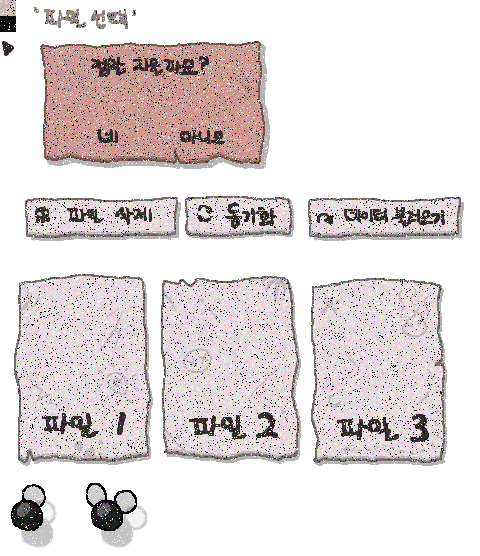 '파일 선택'
정말 지울까요?
네 아니오
파일 삭제
동기화
데이터 불러오기
파일 1
파일 2
파일 3